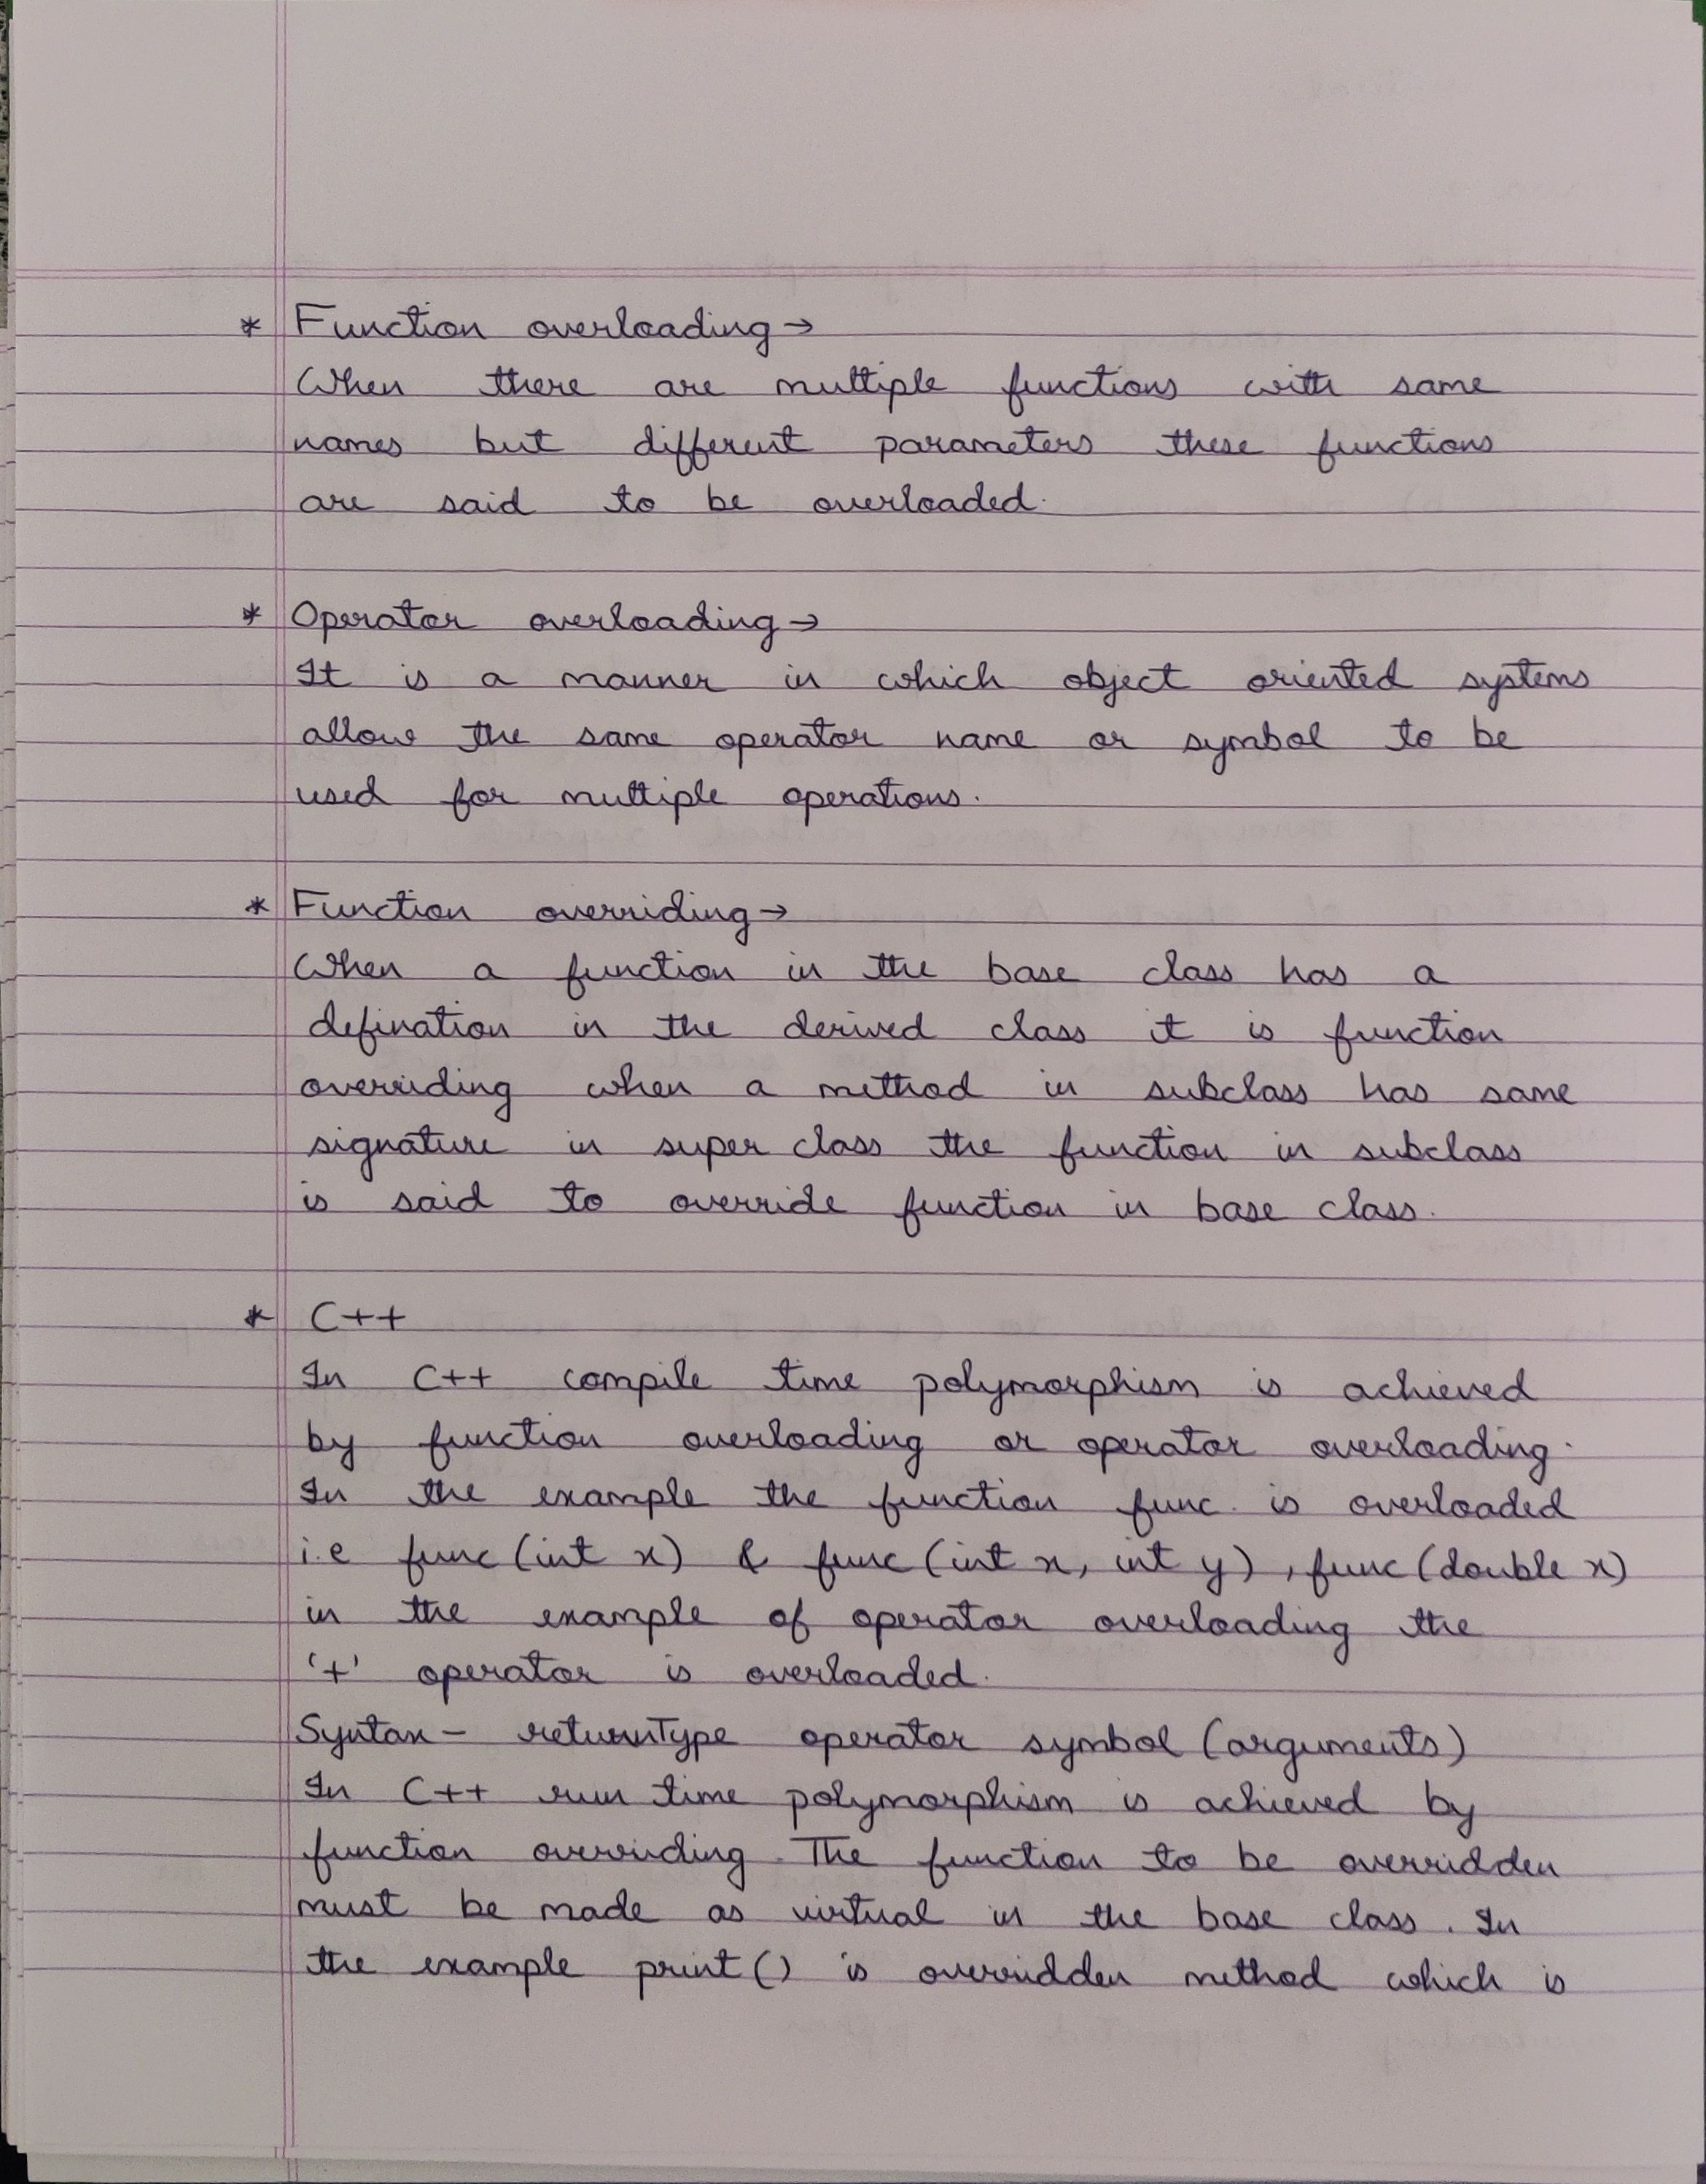 * Function overloading →
When there are multiple functions with same
names but different parameters these functions
are said to be overloaded.
* Operator overloading →
It is a manner in which object oriented systems
allow the same operator name or symbol to be
used for multiple operations.
* Function overriding →
When a function in the base class has a
defination in the derived class it is function
overriding when a method in subclass has same
signature in super class the function in subclass
is said to override function in base class.
* C++
In C++ compile time polymorphism is achieved
by function overloading or operator overloading.
In the example the function func. is overloaded
i.e func (int x) & func (int x, int y) , func (double x)
in the example of operator overloading the
'+' operator is overloaded.
Syntax - returnType operator symbol (arguments)
In C++ run time polymorphism is achieved by
function overriding. The function to be overridden
must be made as virtual in the base class. In
the example print () is overridden method which is